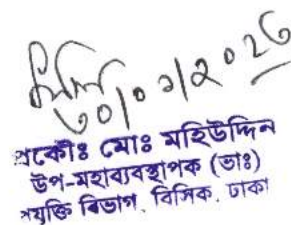 ৩০/০১/২০২৬
প্রকৌঃ মোঃ মহিউদ্দিন
উপ-মহাব্যবস্থাপক (ভাঃ)
প্রযুক্তি বিভাগ, বিসিক, ঢাকা